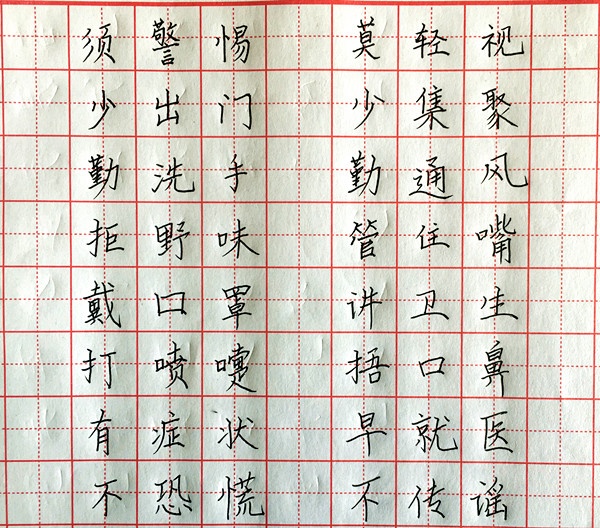 须警惕 莫轻视
少出门 少集聚
勤洗手 勤通风
拒野味 管住嘴
戴口罩 讲卫生
打喷嚏 捂口鼻
有症状 早就医
不恐慌 不传谣